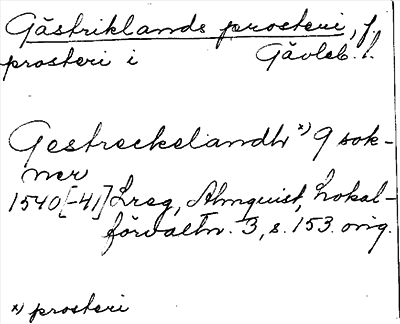 Gästriklands prosteri, f.
prosteri i Gävleb. l.
Gestreckelandh x) 9 sok-
ner
1540[-41] Lreg, Almquist, Lokal-
förvaltn. 3, s. 153. orig.
x) prosteri